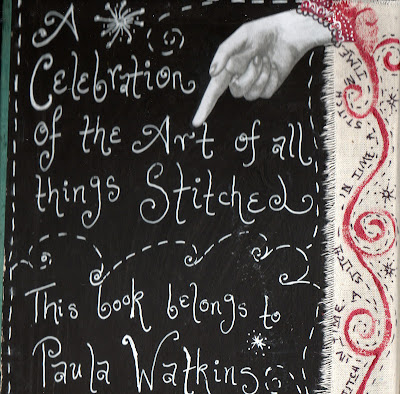 A
Celebration
of the Art of all
things Stitched
This book belongs to
Paula Watkins
STITCH IN TIME A STITCH IN TIME A STITCH IN TIME